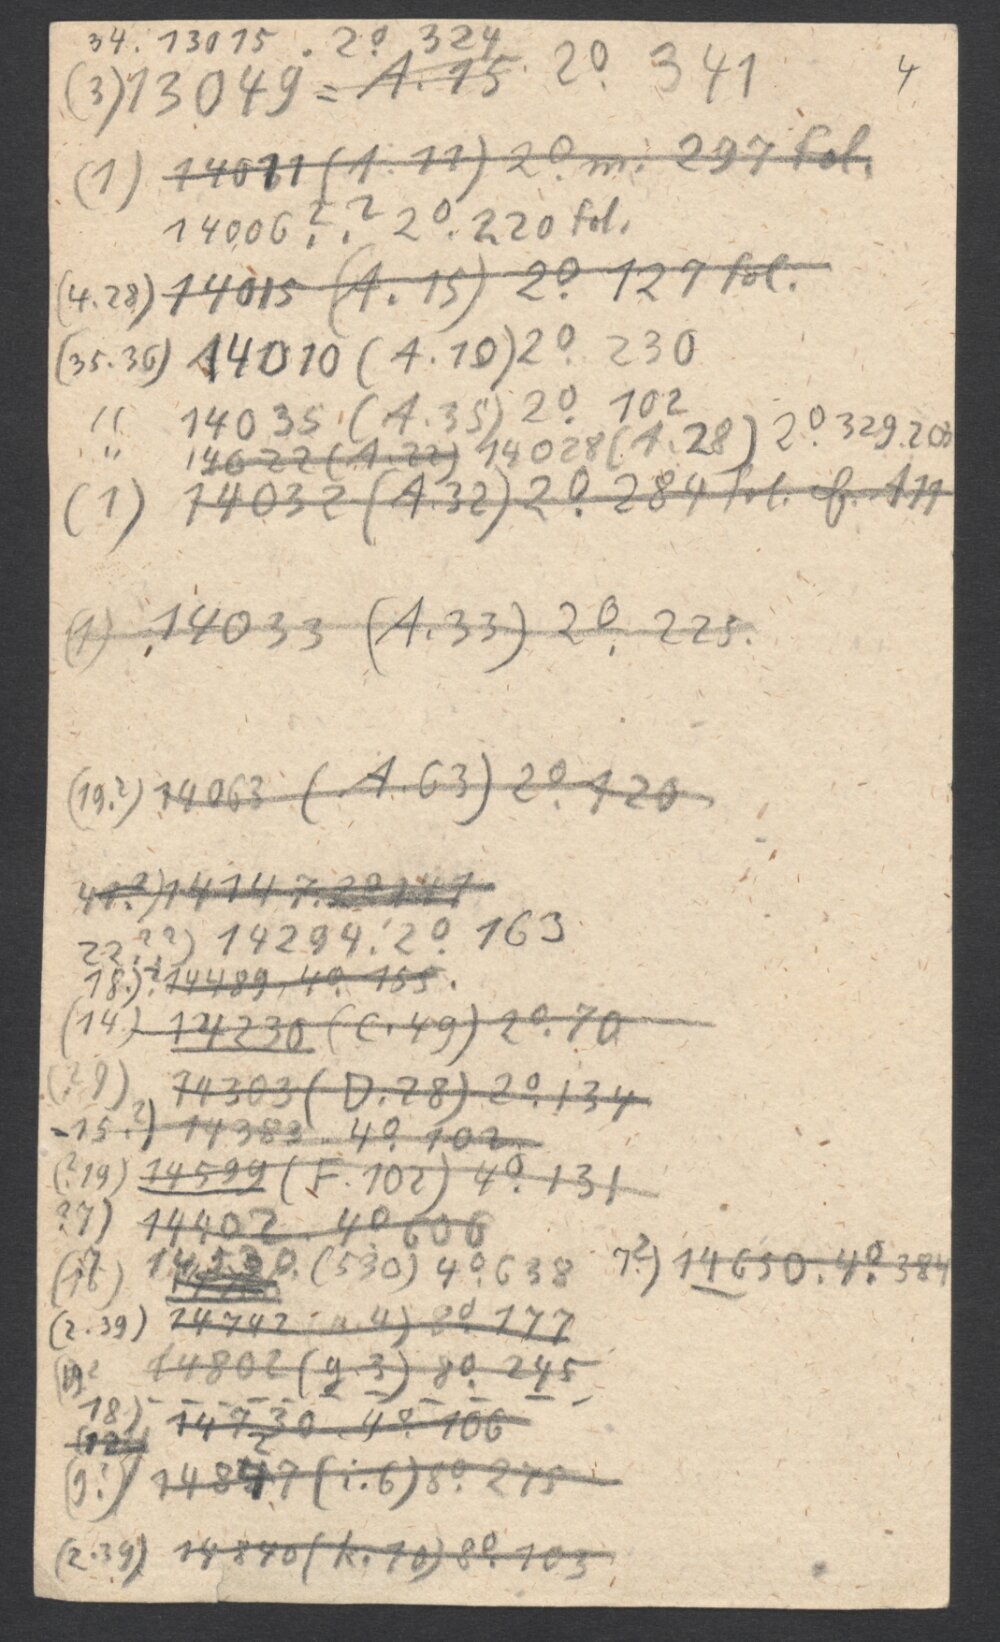 34. 13015 . 2º 324
(3) 13049 = A. 15 2º. 341 4
(1) 14011 (A. 11) 2º. m. 297 fol.
14006 ? . ? . 2º. 220 fol.
(4.28) 14015 (A. 15) 2º. 127 fol.
(35.36) 14010 (A. 10) 2º. 230
" 14035 (A. 35) 2º. 102
" 14022 (A. 22) 14028 (A. 28) 2º. 329.
(1) 14032 (A. 32) 2º. 284 fol. cf. A 11
(1) 14033 (A. 33) 2º. 225.
(19.?) 14063 (A. 63) 2º. 120
41.?) 14147. 2º 141
22.??) 14294. 2º. 163
18.)? 14489. 4º. 155.
(14.) 14230 (C. 49) 2º. 70
14303 (D. 28) 2º. 134
-15.?) 14383. 4º. 102.
(?19) 14599 (F. 102) 4º. 131
?7) 14402. 4º 606
(16) 14530. (530) 4º. 638 7?) 14650. 4º. 384
(2.39) 14742 4) 8º 177
14802 (g. 3) 8º. 245
18) 14730. 4º. 106
(9?) 14847 (i. 6) 8º. 275
(2.39) 14840 (k. 10) 8º. 103